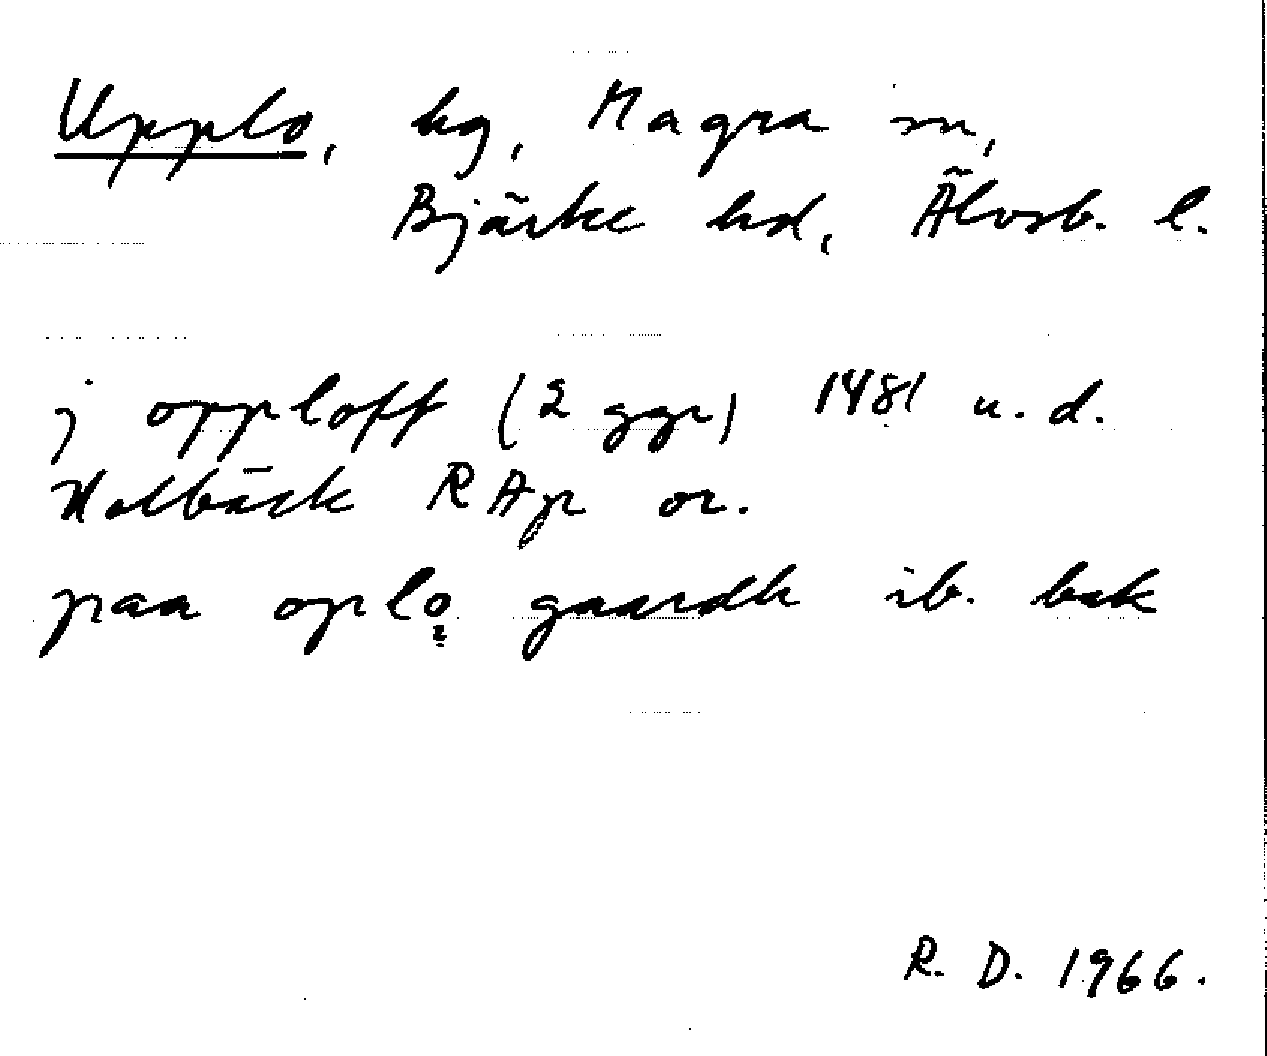 Upplo, hg, Magra sn,
Bjärke hd, Älvsb. l.
j opploff (2 ggr) 1481 u. d.
Holbäck RAp or.
paa oplo gaardh ib. bak
R. D. 1966.